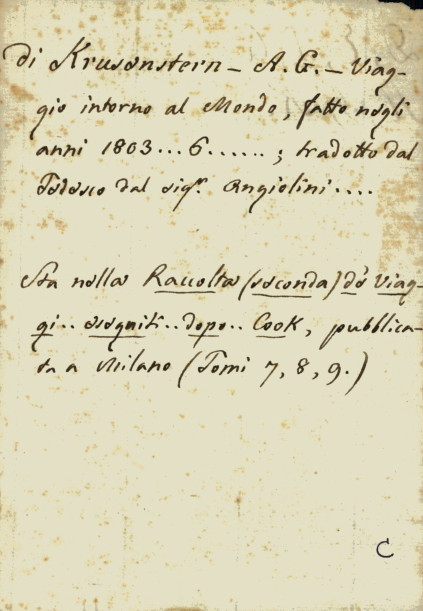 di Krusenstern - A. G. - Viag-
gio intorno al Mondo, fatto negli
anni 1803...6......; tradotto dal
Tedesco dal sigr. Angiolini....
Sta nella Raccolta (seconda) de' Viag-
gi.. eseguiti.. dopo.. Cook, pubblica-
ta a Milano (Tomi 7, 8, 9.)
C